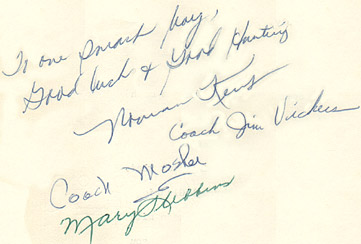 To one smash boy,
Good luck & Good Hunting
Norman
Coach Jim Vickers
Coach Mosher
Mary Hibbins